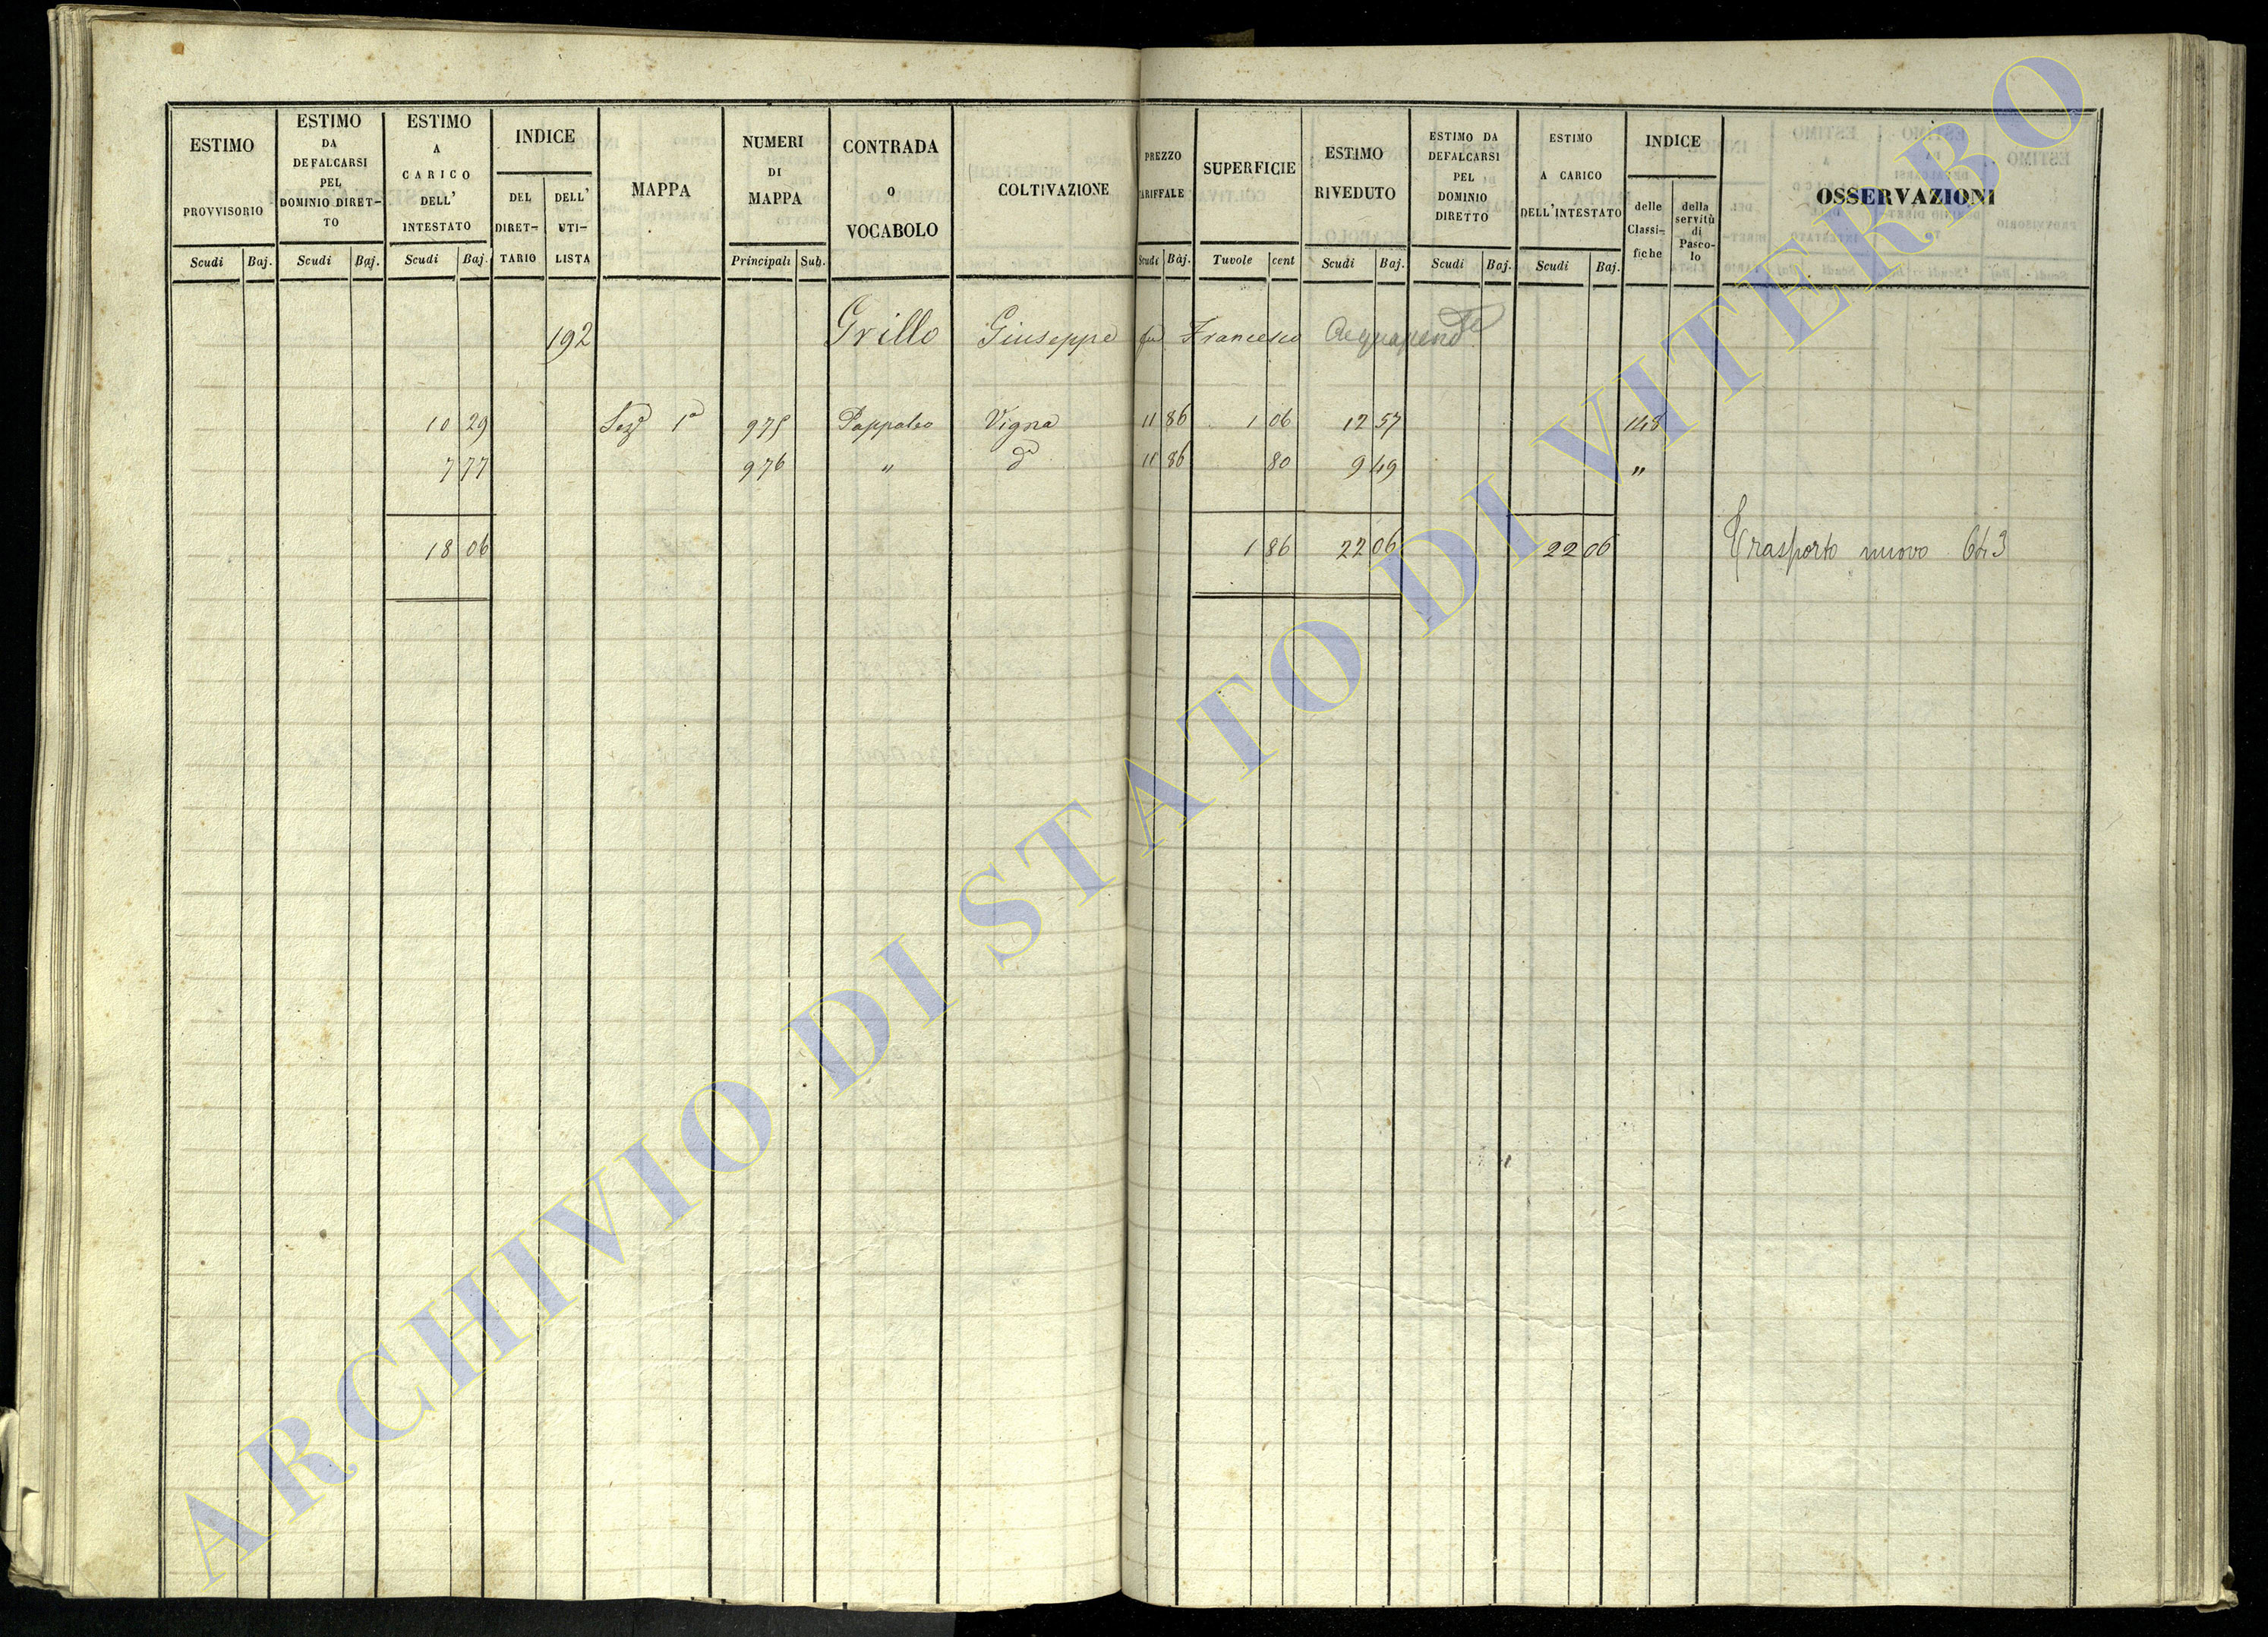 ESTIMO PROVVISORIO Scudi Baj.
ESTIMO DA DEFALCARSI PEL DOMINIO DIRET-TO Scudi Baj.
ESTIMO A CARICO DELL' INTESTATO Scudi Baj.
INDICE DEL DIRET-TARIO DELL' UTI-LISTA
MAPPA
NUMERI DI MAPPA Principali Sub.
CONTRADA O VOCABOLO
COLTIVAZIONE
PREZZO TARIFFALE Scudi Baj.
SUPERFICIE Tavole cent
ESTIMO RIVEDUTO Scudi Baj.
ESTIMO DA DEFALCARSI PEL DOMINIO DIRETTO Scudi Baj.
ESTIMO A CARICO DELL'INTESTATO Scudi Baj.
INDICE delle Classi-fiche della servitù di Pasco-lo
OSSERVAZIONI
192 Grillo Giuseppe fu Francesco Acquapend.te
10 29 Sez.e 1a 975 Pappaleo Vigna 11 86 1 06 12 57 148
7 77 976 " d.a 11 86 80 9 49 "
18 06 1 86 22 06 22 06 Trasporto nuovo 643
ARCHIVIO DI STATO DI VITERBO